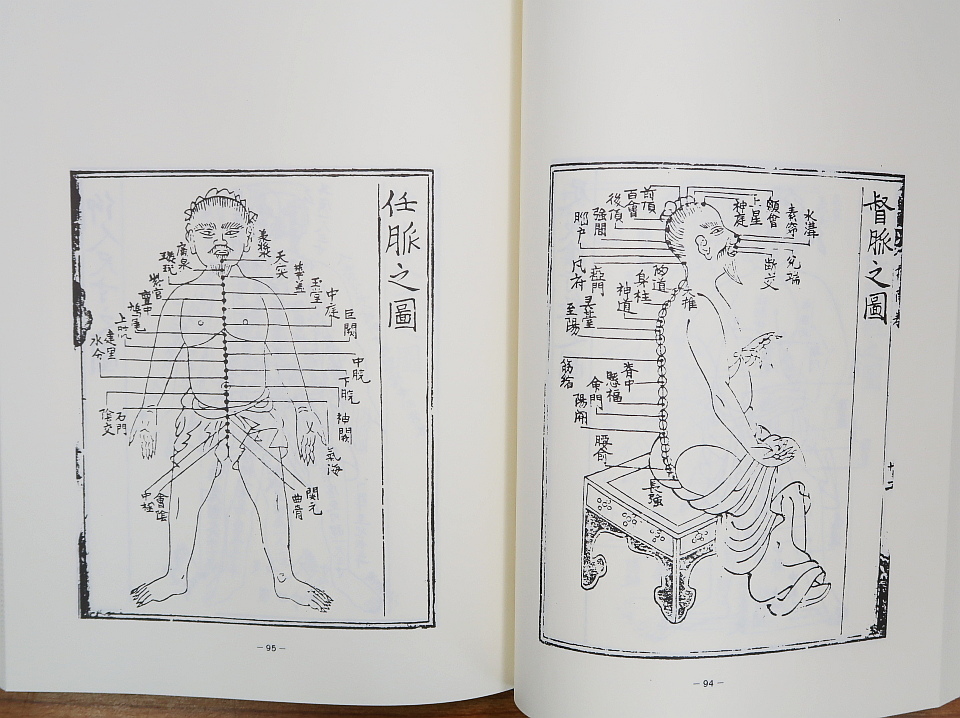 督脈之圖
水溝
顖會
上星
神庭
前頂
百會
後頂
強間
兌端
瘂門
大椎
身柱
神道
至陽
筋縮
脊中
命門
陽関
腰俞
長強
-94-
任脈之圖
承漿
廉泉
天突
璇璣
華盖
紫宮
玉堂
中庭
鳩尾
巨闕
上脘
中脘
建里
下脘
水分
神闕
陰交
石門
氣海
関元
曲骨
中極
會陰
-95-